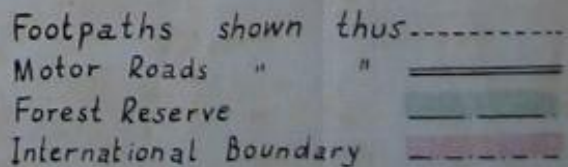 Footpaths shown thus
Motor Roads " "
Forest Reserve
International Boundary